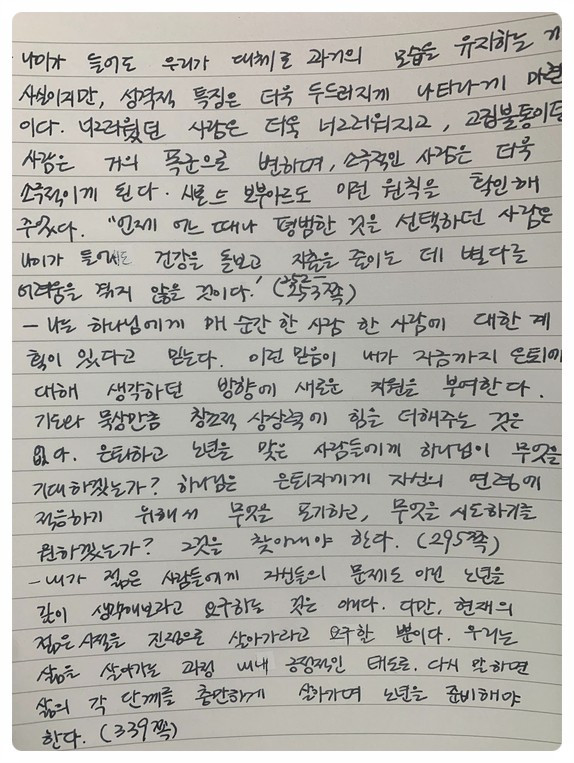 나이가 들어도 우리가 대체로 과거의 모습을 유지하는 게
사실이지만, 성격적 특징은 더욱 두드러지게 나타나게 마련
이다. 너그러웠던 사람은 더욱 너그러워지고, 고집불통이던
사람은 거의 폭군으로 변하며, 소극적인 사람은 더욱
소극적이게 된다. 시몬느 보부아르도 이런 원칙을 확인해
주었다. "언제 어느 때나 평범한 것을 선택하던 사람은
나이가 들어서도 건강을 돌보고 지출을 줄이는 데 별다른
어려움을 겪지 않을 것이다." (252-253쪽)
- 나는 하나님에게 매 순간 한 사람 한 사람에 대한 계
획이 있다고 믿는다. 이런 믿음이 내가 지금까지 은퇴에
대해 생각하던 방향에 새로운 차원을 부여한다.
기도와 묵상만큼 창조적 상상력에 힘을 더해주는 것은
없다. 은퇴하고 노년을 맞은 사람들에게 하나님이 무엇을
기대하겠는가? 하나님은 은퇴자에게 자신의 연령에
적응하기 위해서 무엇을 포기하고, 무엇을 시도하기를
원하겠는가? 그것을 찾아내야 한다. (295쪽)
- 내가 젊은 사람들에게 자신들의 문제도 아닌 노년을
깊이 생각해보라고 요구하는 것은 아니다. 다만, 현재의
젊은 시절을 진정으로 살아가라고 요구할 뿐이다. 우리는
삶을 살아가는 과정 내내 긍정적인 태도로, 다시 말하면
삶의 각 단계를 충만하게 살아가며 노년을 준비해야
한다. (339쪽)